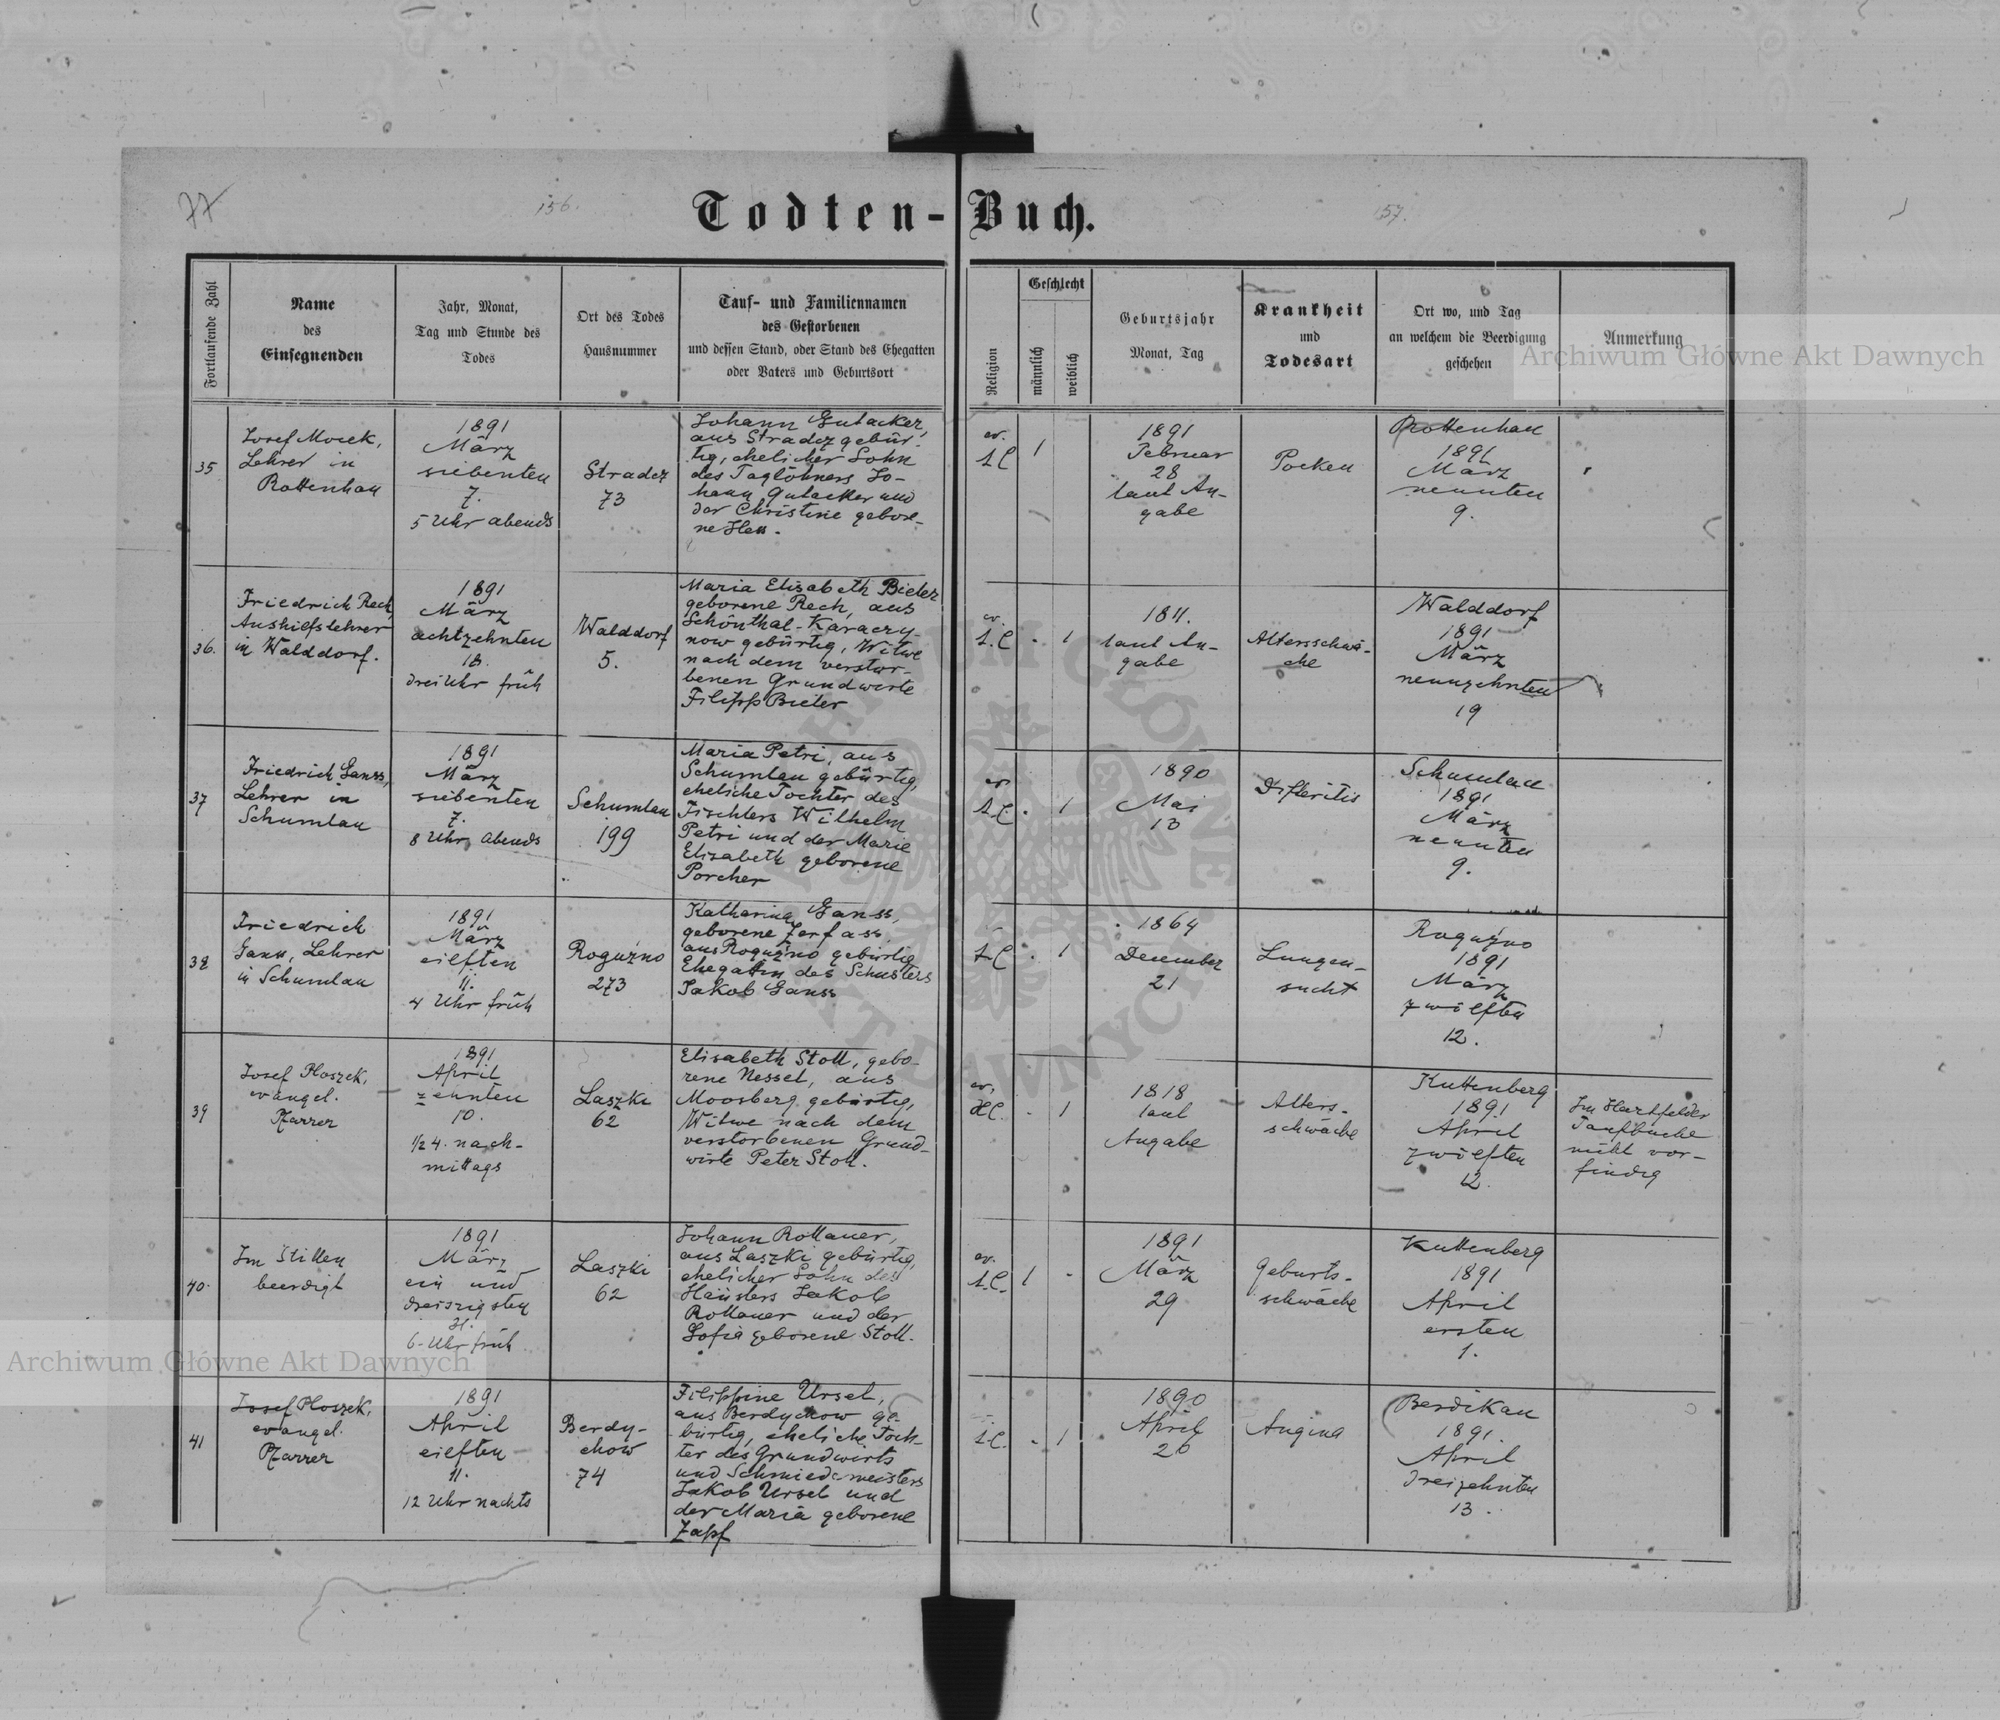 77
156.
157.
Todten-Buch.
Fortlaufende Zahl
Name
des
Einsegnenden
Jahr, Monat,
Tag und Stunde des
Todes
Ort des Todes
Hausnummer
Tauf- und Familiennamen
des Gestorbenen
und dessen Stand, oder Stand des Ehegatten
oder Vaters und Geburtsort
Religion
Geschlecht
männlich
weiblich
Geburtsjahr
Monat, Tag
Krankheit
und
Todesart
Ort wo, und Tag
an welchem die Beerdigung
geschehen
Anmerkung
35
Josef Mosek,
Lehrer in
Rottenhan
1891
März
siebenten
7.
5 Uhr abends
Stradcz
73
Johann Gutacker,
aus Stradcz gebür-
tig, ehelicher Sohn
des Taglöhners Jo-
hann Gutacker und
der Christine gebore-
ne Hess.
ev.
A.C.
1
1891
Februar
28
laut An-
gabe
Pocken
Rottenhan
1891
März
neunten
9.
36.
Friedrich Rech,
Aushilfslehrer
in Walddorf.
1891
März
achtzehnten
18.
drei Uhr früh
Walddorf
5.
Maria Elisabeth Bieler
geborene Rech, aus
Schönthal-Karaczy-
now gebürtig, Witwe
nach dem verstor-
benen Grundwirte
Filipp Bieler
ev.
A.C.
-
1
1811.
laut An-
gabe
Altersschwä-
che
Walddorf
1891
März
neunzehnten
19
37
Friedrich Ganss,
Lehrer in
Schumlau
1891
März
siebenten
7.
8 Uhr abends
Schumlau
199
Maria Petri, aus
Schumlau gebürtig,
eheliche Tochter des
Tischlers Wilhelm
Petri und der Marie
Elisabeth geborene
Porcher
ev.
A.C.
-
1
1890
Mai
13
Difteritis
Schumlau
1891
März
neunten
9.
38
Friedrich
Ganss, Lehrer
in Schumlau
1891
März
eilften
11.
4 Uhr früh
Roguźno
273
Katharina Ganss,
geborene Zerfass
aus Roguźno gebürtig
Ehegattin des Schusters
Jakob Ganss
A.C.
-
1
1864
December
21
Lungen-
sucht
Roguźno
1891
März
zwölften
12.
39
Josef Ploszek,
evangel.
Pfarrer
1891
April
zehnten
10.
1/2 4. nach-
mittags
Laszki
62
Elisabeth Stoll, gebo-
rene Nessel, aus
Moosberg gebürtig,
Witwe nach dem
verstorbenen Grund-
wirte Peter Stoll.
ev.
H.C.
-
1
1818
laut
Angabe
Alters-
schwäche
Kuttenberg
1891
April
zwölften
12.
Im Hartfelder
Taufbuche
nicht vor-
findig
40.
Im Stillen
beerdigt
1891
März
ein und
dreiszigsten
31.
6 Uhr früh
Laszki
62
Johann Rollauer,
aus Laszki gebürtig,
ehelicher Sohn des
Häuslers Jakob
Rollauer und der
Sofia geborene Stoll.
ev.
A.C.
1
-
1891
März
29
Geburts-
schwäche
Kuttenberg
1891
April
ersten
1.
41
Josef Ploszek,
evangel.
Pfarrer
1891
April
eilften
11.
12 Uhr nachts
Berdy-
chow
74
Filippine Ursel,
aus Berdychow ge-
bürtig, eheliche Toch-
ter des Grundwirts
und Schmiedemeisters
Jakob Ursel und
der Maria geborene
Zapf
A.C.
-
1
1890
April
20
Angina
Berdikau
1891.
April
dreizehnten
13.
Archiwum Główne Akt Dawnych
Archiwum Główne Akt Dawnych
ARCHIWUM GŁÓWNE
AKT DAWNYCH